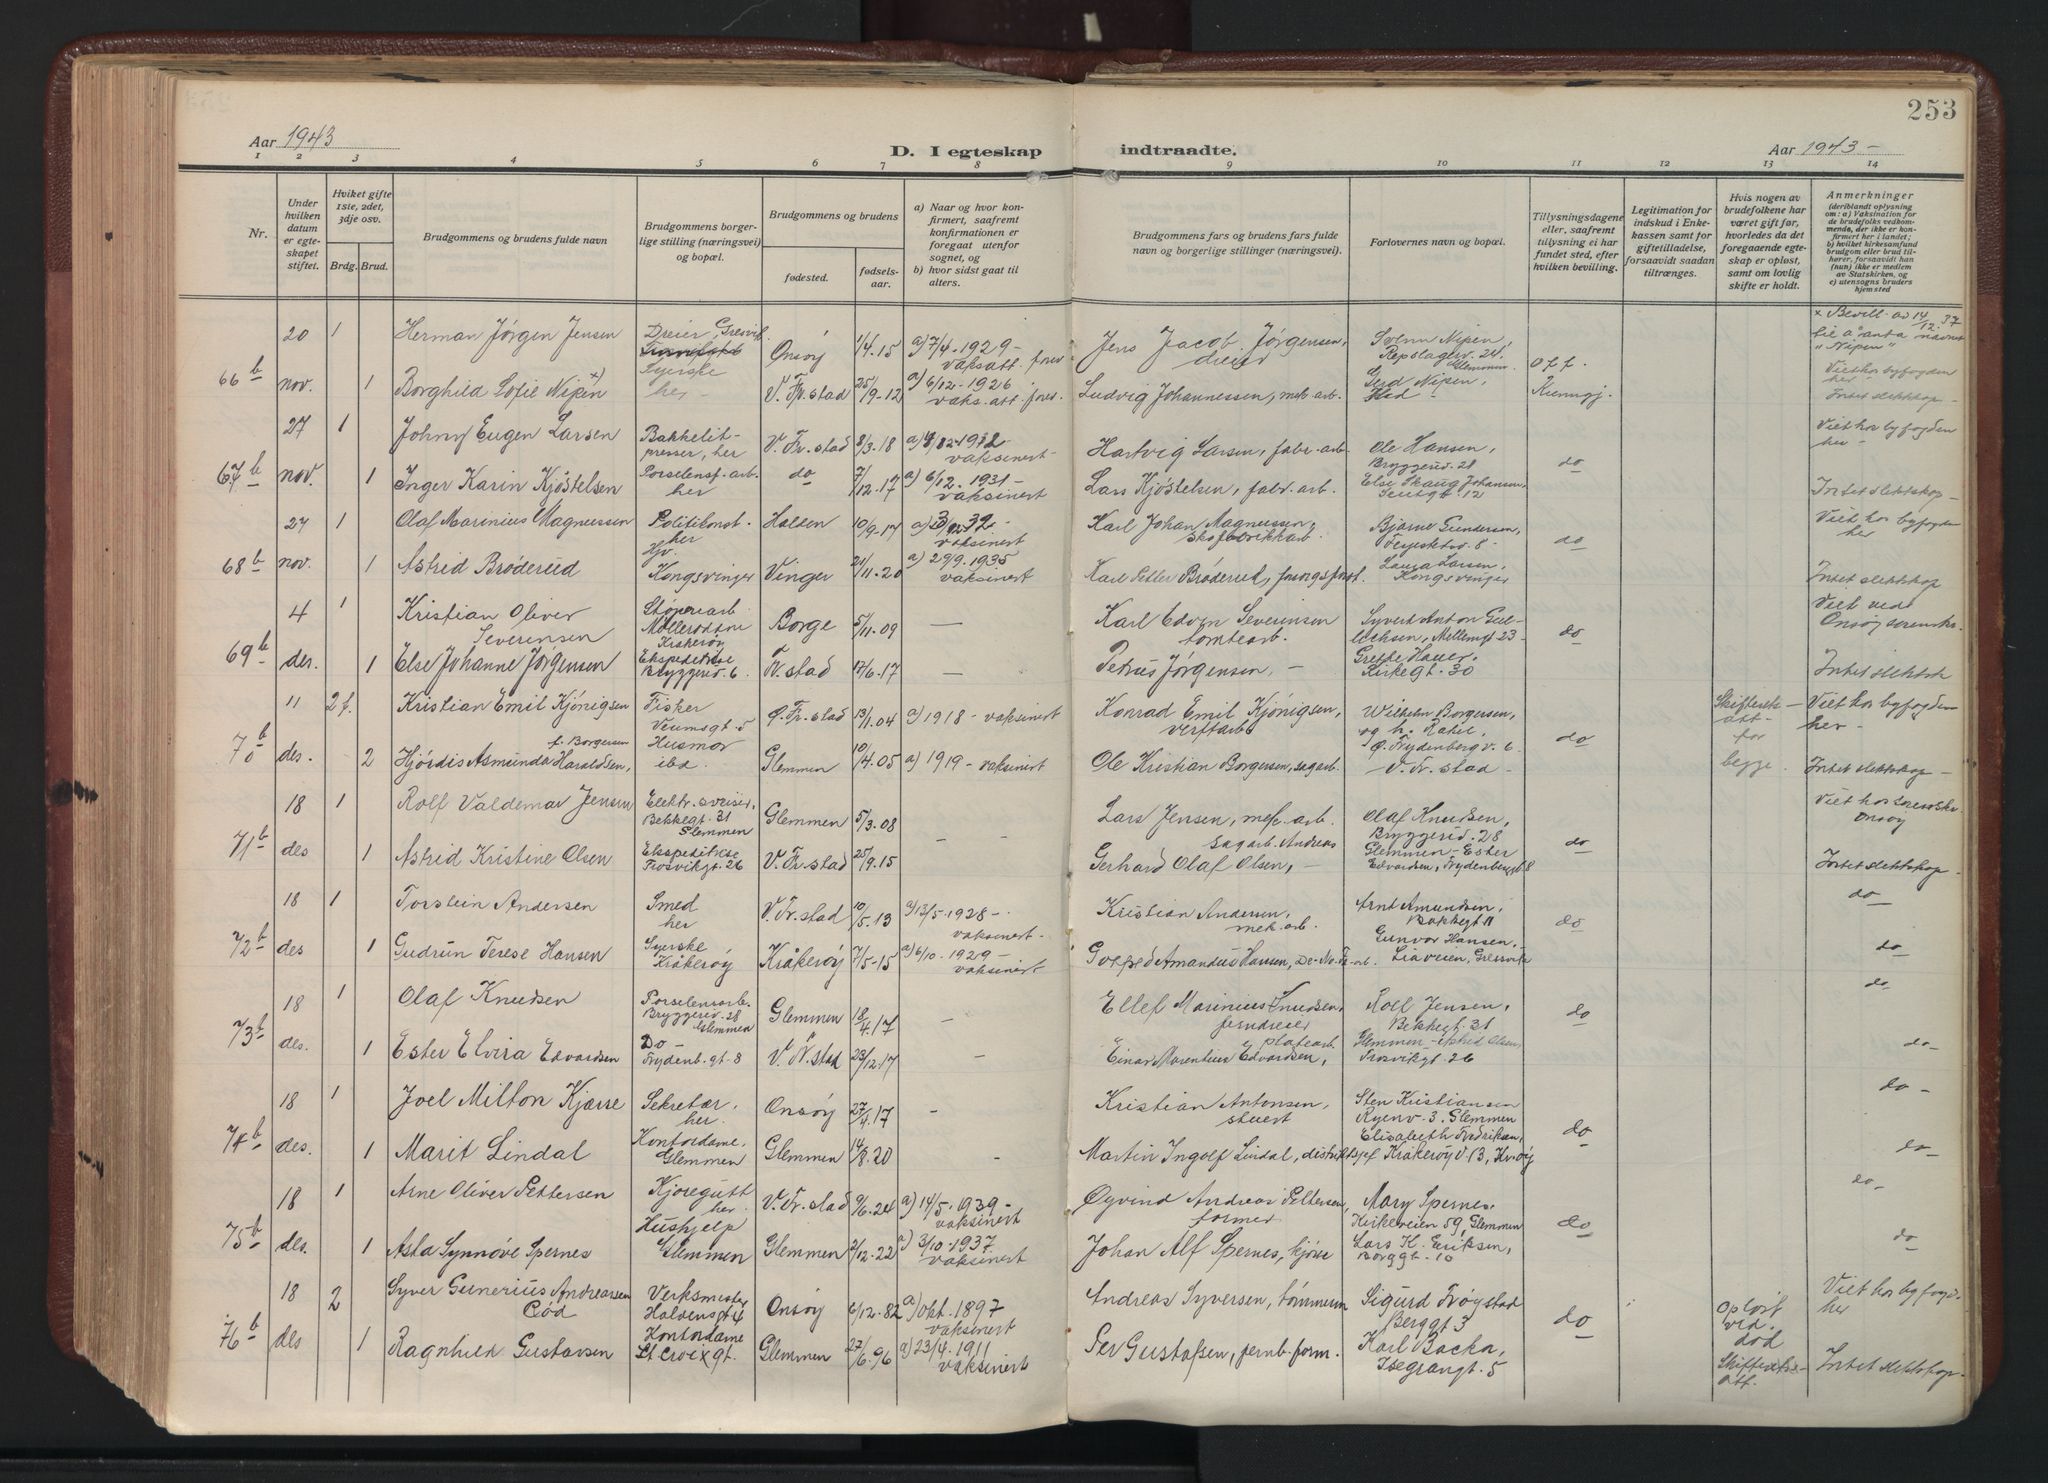 253
Aar 1943
D. I egteskap indtraadte.
Aar 1943 -
1 2 3 4 5 6 7 8 9 10 11 12 13 14
Nr.
Under hvilken datum er egteskapet stiftet.
Hviket gifte 1ste, 2det, 3dje osv.
Brdg. Brud.
Brudgommens og brudens fulde navn
Brudgommens borgerlige stilling (næringsvei) og bopæl.
Brudgommens og brudens
fødested.
fødselsaar.
a) Naar og hvor konfirmert, saafremt konfirmationen er foregaat utenfor sognet, og
b) hvor sidst gaat til alters.
Brudgommens fars og brudens fars fulde navn og borgerlige stillinger (næringsvei).
Forlovernes navn og bopæl.
Tillysningsdagene eller, saafremt tillysning ei har fundet sted, efter hvilken bevilling.
Legitimation for indskud i Enkekassen samt for giftetilladelse, forsaavidt saadan tiltrænges.
Hvis nogen av brudefolkene har været gift før, hvorledes da det foregaaende egteskap er opløst, samt om lovlig skifte er holdt.
Anmerkninger
(deriblandt oplysning om: a) Vaksination for de brudefolks vedkommende, der ikke er konfirmert her i landet; b) hvilket kirkesamfund brudgom eller brud tilhører, forsaavidt han (hun) ikke er medlem av Statskirken, og c) utensogns bruders hjemsted
20 1 Herman Jørgen Jensen Dreier, Gresvik Onsøy 1/4.15 a) 7/4.1929 - vaks att. forev Jens Jacob Jørgensen, dreier Solrun Nipen, Repslagerv. 24. Glemmen × Bevill. av 14/12.37 til å anta navnet "Nipen"
66 b nov. 1 Borghild Sofie Nipen ×) Syerske her - V. Fr.stad 25/9-12 a) 6/12-1926 vaks. att forev. Ludvig Johannessen, mek. arb. Gerd Nipen, Off. Kunngj. Viet hos byfogden her - Intet slektskap -
27 1 Johny Eugen Larsen Bakkelitpresser, her V. Fr.stad 8/3.18 vaksinert - Hartvig Larsen, fabr. arb. Ole Hansen, Bryggeriv. 28 do Viet hos byfogden her -
67 b nov. 1 Inger Karin Kjøstelsen Porselensf. arb. her do 7/12.17 a) 6/12.1931 - vaksinert Lars Kjøstelsen, fabr. arb. Else Skaug Johansen, 12 Intet slektskap -
27 1 Olaf Marinius Magnussen Politikonst. her Halden 10/9-17 32 - vaksinert Karl Johan Magnussen, skofabrikkarb. Bjarne Gundersen, 8 - do Viet hos byfogden her
68 b nov. 1 Astrid Brøderud Hjv. Kongsvinger Vinger 21/11.20 a) 29/9.1935 vaksinert Karl Petter Brøderud, Laura Larsen, Kongsvinger Intet slektskap
4 1 Kristian Oliver Severinsen Støperiarb. Mølleroddne Kråkerøy Borge 5/11.09 — Karl Edvin Severinsen tomtearb. Syvert Anton Gullichsen, Mellemgt 23 - do Viet ved Onsøy sorenskr.
69 b des. 1 Else Johanne Jørgensen Ekspeditrise Bryggeriv. 6 Fr.stad 17/6.17 — Petrus Jørgensen, - Grethe Hauer, Kirkegt. 30 Intet slektsk
11 2 f. Kristian Emil Kjønigsen Fisker Veumsgt. 5 Ø. Fr.stad 13/1.04 a) 1918 - vaksinert Konrad Emil Kjønigsen, verftarb Wilhelm Borgersen, og h. Rakel, do Skifterettatt. for begge. Viet hos byfogden her -
70 b des. 2 Hjørdis Asmunda Haraldsen, f. Borgersen Husmor ibd. Glemmen 10/4.05 a) 1919 - vaksinert Ole Kristian Borgersen, sagarb. Ø. Frydenberg v. 6 V. Fr.stad - Intet slektskap -
18 1 Rolf Valdemar Jensen Elektr. sveiser, Bekkegt. 31 Glemmen Glemmen 5/3.08 - Lars Jensen, mek. arb. Olaf Knudsen, Bryggeriv. 28 Glemmen - do Viet hos sorenskr. Onsøy
71 b des 1 Astrid Kristine Olsen Ekspeditrise Trosvikgt. 26 V. Fr.stad 25/9.15 - sagarb. Andreas Gerhard Olaf Olsen, - Ester Edvardsen, Frydenberggt 8 Intet slektskap -
18 1 Torstein Andersen Smed her V. Fr.stad 10/5.13 a) 13/5-1928 - vaksinert - Kristian Andersen, mek. arb. Arnt Amundsen, Bakkegt 11 do do -
72 b des 1 Gudrun Terese Hansen Syerske Kråkerøy Kråkerøy 7/5-15 a) 6/10.1929 - vaksinert Amandus Hansen, Gunvor Hansen, Liaveien, Gressvik do
18 1 Olaf Knudsen Porselensarb. Bryggeriv. 28 Glemmen Glemmen 18/4.17 - Ellef Marinius Knudsen, jerndreier Rolf Jensen, Bekkegt. 31 Glemmen - do do
73 b des. 1 Ester Elvira Edvardsen Do - Frydenb. gt. 8 V. Fr.stad 23/12.17 - Einar Marentius Edvardsen, platearb. Astrid Olsen, Trosvikgt. 26 do -
18 1 Joel Milton Kjærre Sekretær, her. Onsøy 27/4.17 - Kristian Antonsen, stuert Sten Kristiansen Ryenv. 3. Glemmen do do -
74 b des. 1 Marit Lindal Kontordame, Glemmen Glemmen 14/8.20 - Martin Ingolf Lindal, Elisabeth Fredriksen, Kråkerøy v. 13, Kr.øy do -
18 1 Arne Oliver Pettersen Kjøregutt her. V. Fr.stad 9/6.24 a) 14/5.1939 - vaksinert Øyvind Andreas Pettersen, former Mary Spernes, Kirkeveien 59 Glemmen do do -
75 b des. 1 Asta Synnøve Spernes Hushjelp Glemmen Glemmen 2/12.22 a) 3/10.1937 vaksinert Johan Alf Spernes, kjører Lars K. Eriksen, Borggt. 10 do
18 2 Syver Gunerius Andreassen Cød Verksmester Haldensgt 4 Onsøy 6/12.82 a) okt. 1897 vaksinert Andreas Syversen, tømmerm Sigurd Trøgstad Berggt 3 do Opløst ved død Viet hos byfogd. her
76 b des 1 Ragnhild Gustavsen Kontordame St Croixgt. Glemmen 27/6.96 a) 23/4.1911 vaksinert Per Gustafsen, jernb. form. Karl Backa, Isegrangt. 5 Skifterettsatt. Intet slektskap.